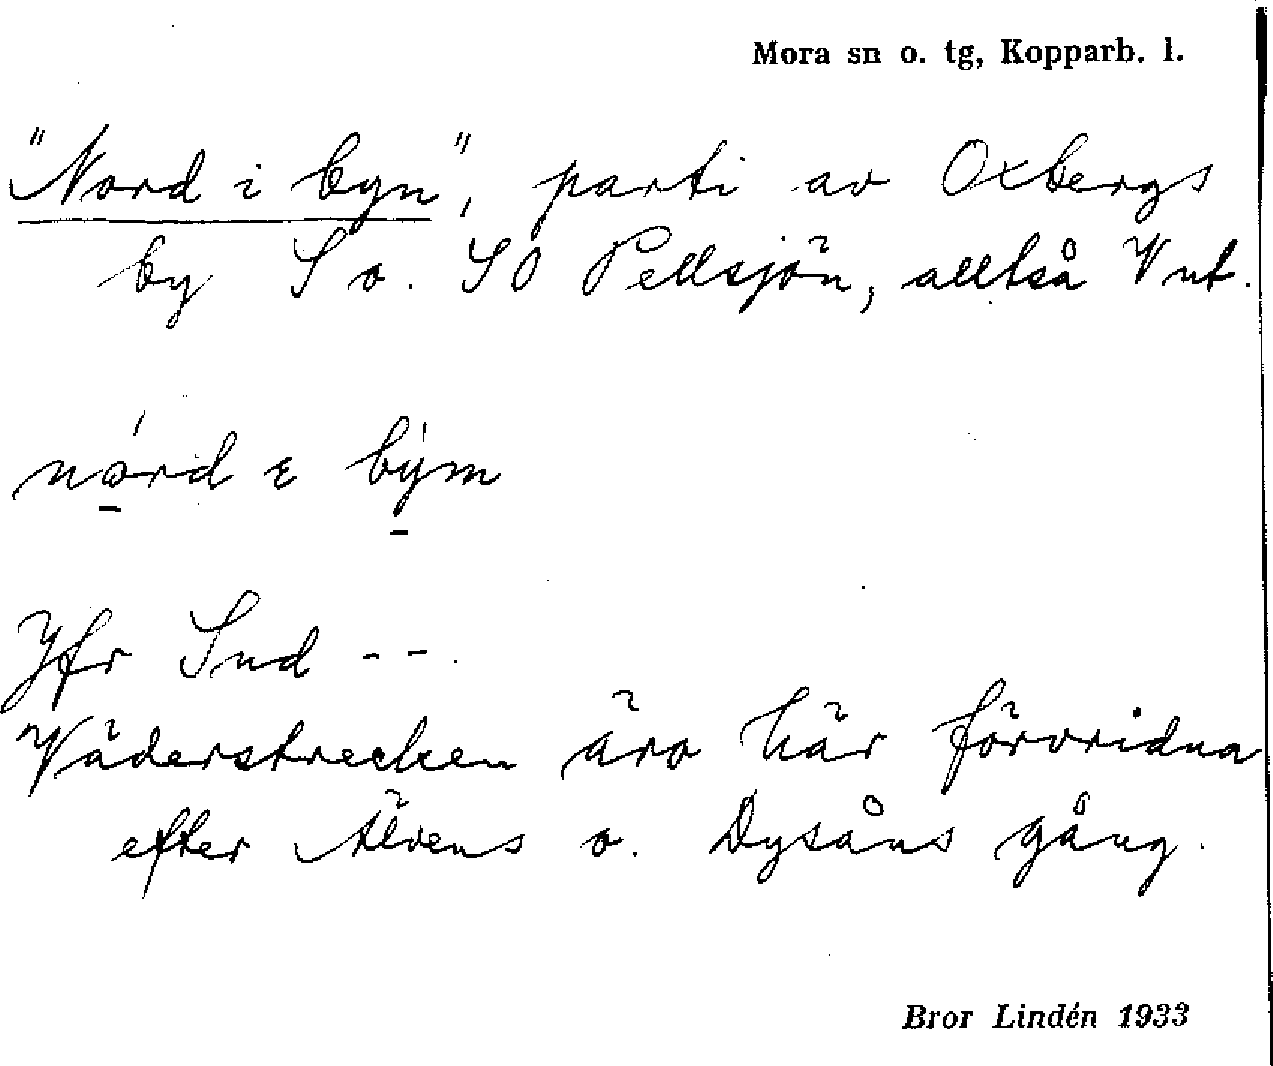 Mora sn o. tg, Kopparb. l.
"Nord i byn", parti av Oxbergs
by S o. SO Pellsjön, alltså V ut.
nórd ε bým
Jfr Sud --.
Väderstrecken äro här förvridna
efter Älvens o. Dysåns gång.
Bror Lindén 1933